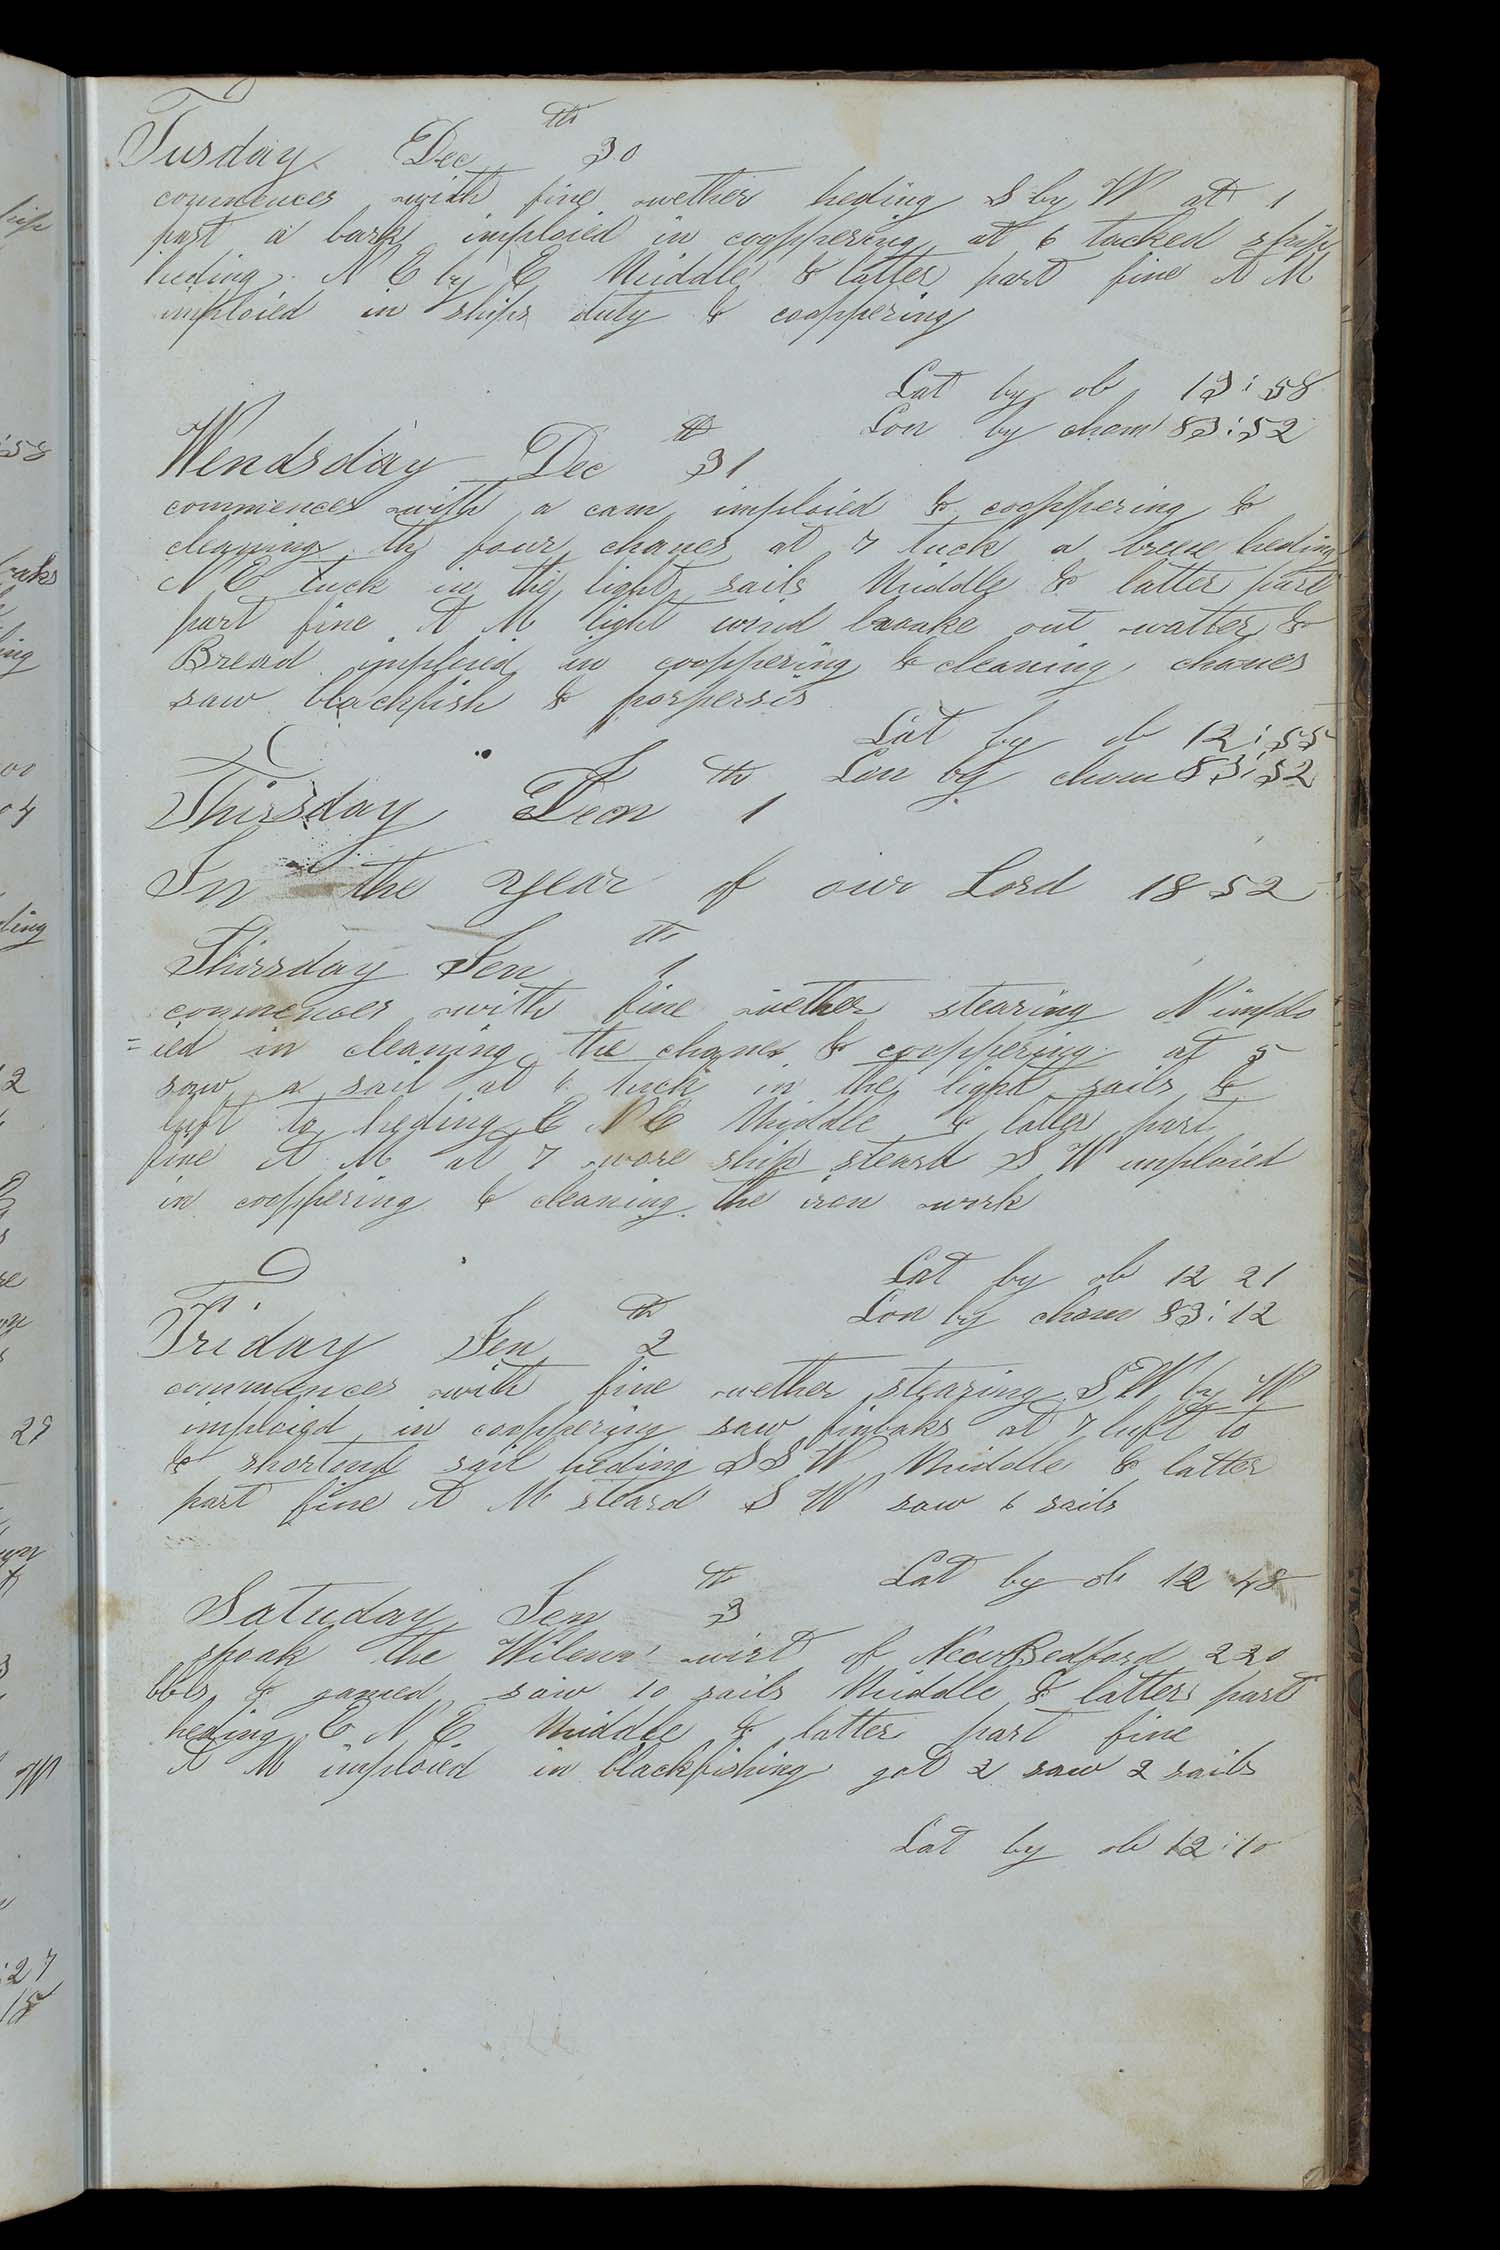 Tusday Dec 30th
commences with fine wether heding S by W at 1
past a bark imploied in cooppering at 6 tacked ship
heding N E by E Middle & latter part fine A M
imploied in ships duty & cooppering
Lat by ob 13:58
Lon by chom 83:52
Wendsday Dec 31th
commences with a cam imploied & cooppering &
cleaning the four chanes at 7 tuck a breeze heding
N E tuck in the light sails Middle & latter part
part fine A M light wind broake out watter &
Bread imploied in cooppering & cleaning chanes
saw blackfish & porpersis
Lat by ob 12:55
Lon by chom 83:52
Thirsday 1th
In the year of our Lord 1852
Thirsday Jen 1th
commences with fine wether stearing N implo
=ied in cleaning the chanes & cooppering at 5
saw a sail at 6 tuck in the light sails &
luft to heding E N E Middle & latter part
fine A M at 7 wore ship steard S W imploied
in cooppering & cleaning the iron work
Lat by ob 12 21
Lon by chom 83:12
Friday Jen 2th
commences with fine wether stearing S W by W
imploied in cooppering saw finbaks at 7 luft to
& shortind sail heding S S W Middle & latter
part fine A M steard S W saw 6 sails
Lat by ob 12 48
Satuday Jen 3th
spoak the wirt of New Bedford 220
bbls & gamed saw 10 sails Middle & latter part
heding E N E Middle & latter part fine
A M imploied in blackfishing got 2 saw 2 sails
Lat by ob 12:10